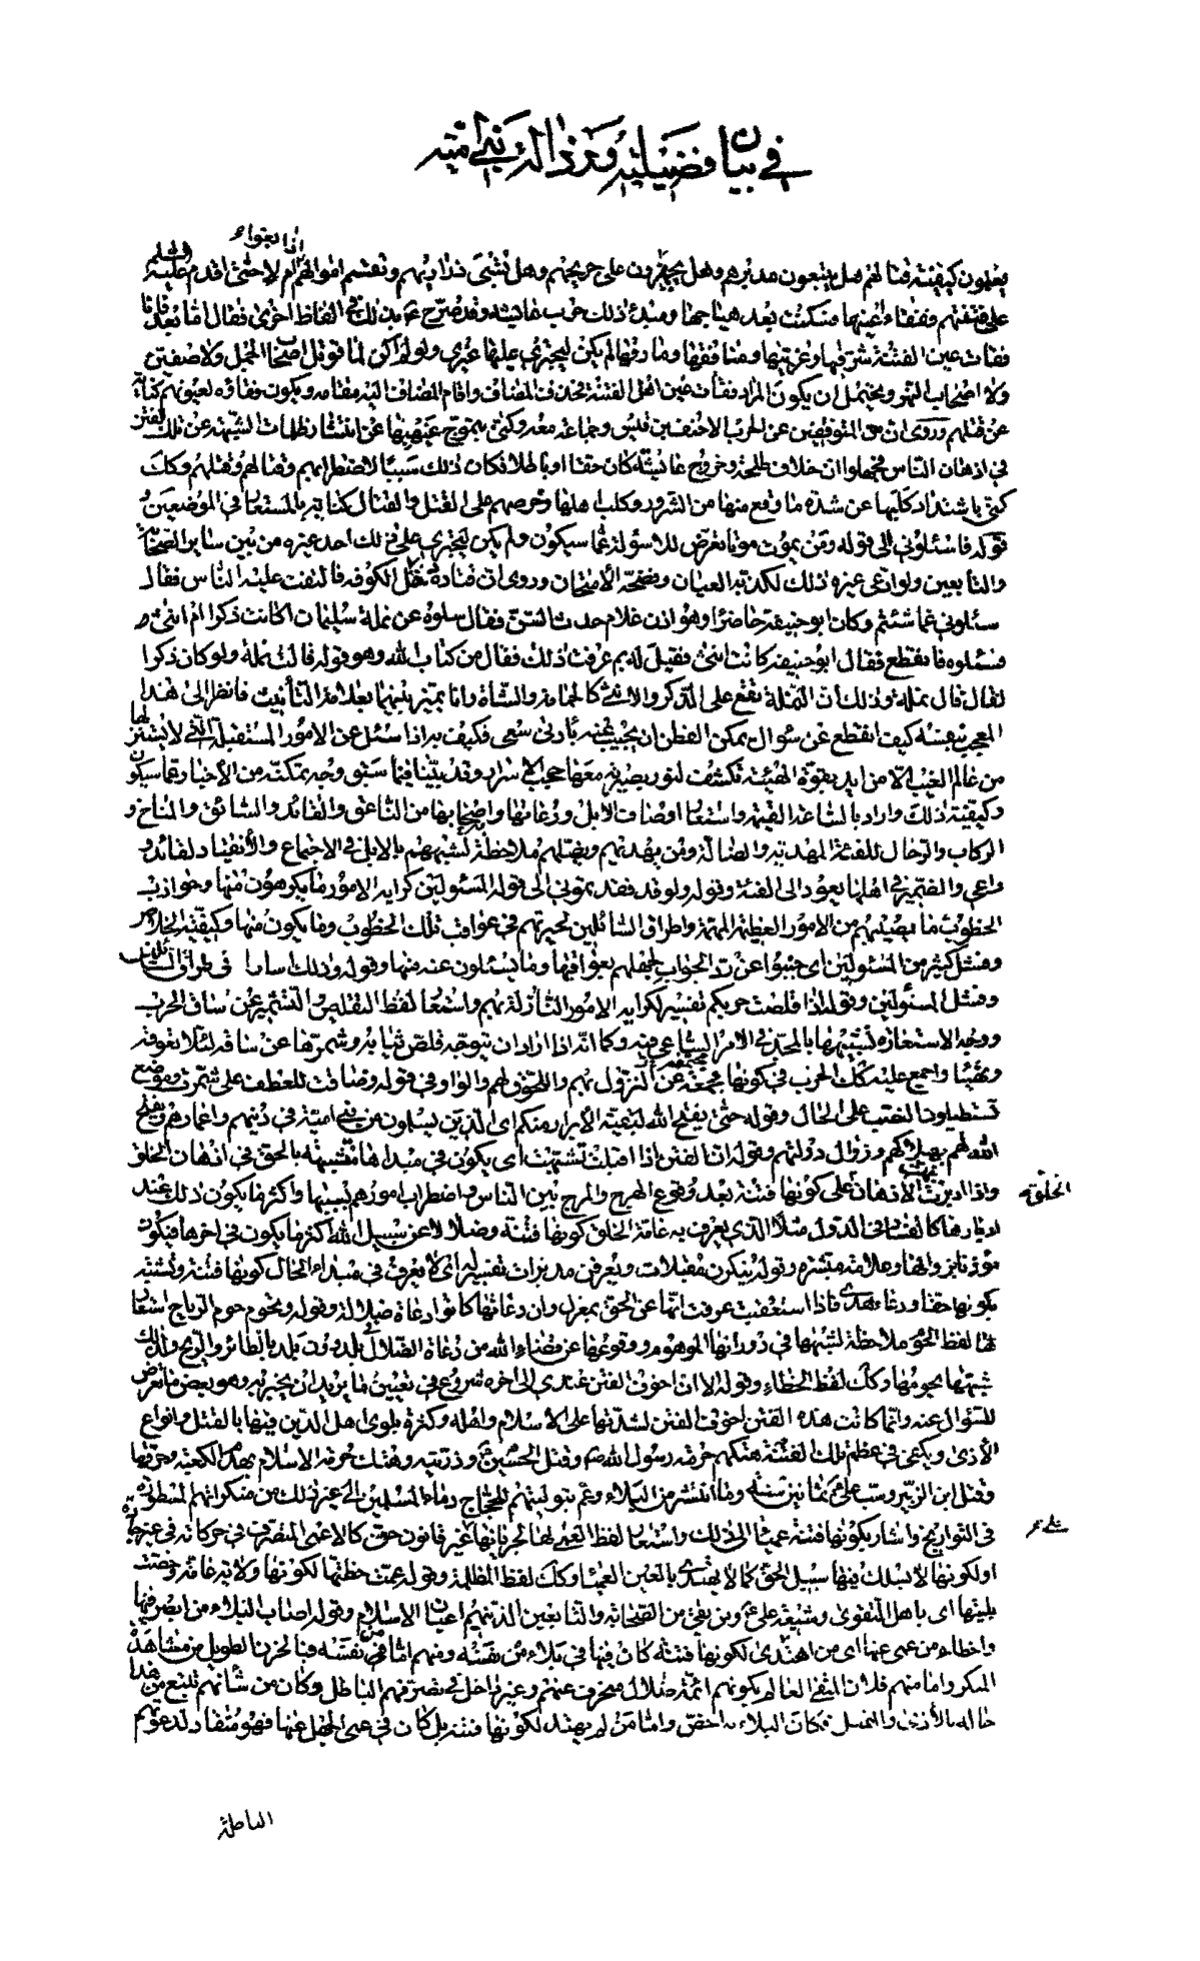 في بيان فضيلته ورذالة بني امية
اذا بغواء
يعلمون كيفية قتالهم هل يتبعون مدبرهم وهل يجهزون على جريحهم وهل تسبى ذراريهم وتقسم اموالهم ام لا حتى اقدم علي ع
على فتنتهم ففقاء عينها فسكنت بعد هياجها ومبدء ذلك حرب عايشه وقد صرح ع بذلك في الفاظ اخرى فقال اما بعد فانا
فقات عين الفتنة شرقيها وغربيها ومنافقها ومارقها لم يكن ليجترئ عليها غيري ولو لم اكن لما قوتل اصحاب الجمل ولا صفين
ولا اصحاب النهر ويحتمل ان يكون المراد فقأت عين اهل الفتنة فحذف المضاف واقام المضاف اليه مقامه ويكون فقاؤه لعيونهم كناية
عن قتلهم وروى ان من المتوقفين عن الحرب الاحنف بن قيس وجماعة معه وكنى بتموج غيهبها عن انتشار ظلمات الشبهة عن تلك الفتن
في اذهان الناس فجهلوا ان خلاف طلحة وخروج عائشة كان حقا او باطلا فكان ذلك سببا لاضطرابهم وقتالهم وقتلهم وكك
كنى باشتداد كلبها عن شدة ما وقع منها من الشرور وكلب اهلها وحرصهم على القتل والقتال كناية بالمستعار في الموضعين و
قوله فاسئلوني الى قوله ومن يموت موتا تعرض للاسولة عما سيكون ولم يكن ليجترئ على ذلك احد غيره من بين ساير الصحابة
والتابعين ولو ادعى غيره ذلك لكذبه العيان وفضحه الامتحان وروى ان قتادة دخل الكوفة فالتفت عليه الناس فقال
سئلوني عما شئتم وكان ابو حنيفة حاضرا وهو اذن غلام حدث السن فقال سلوه عن نملة سليمان اكانت ذكرا ام انثى
فسئلوه فانقطع فقال ابو حنيفة كانت انثى فقيل له بم عرفت ذلك فقال من كتاب الله وهو قوله قالت نملة ولو كان ذكرا
لقال قال نملة وذلك ان النملة تقع على الذكر والانثى كالحمامة والشاة وانما يميز بينهما بعلامة التأنيث فانظر الى هذا
المعجب بنفسه كيف انقطع عن سؤال يمكن الفطن ان يجيب عنه بأدنى سعى فكيف به اذا سئل عن الامور المستقبلة التي لا يتنزل لها
من عالم الغيب الا من ايد بقوة الهية تكشف لنور بصيرته معها حجب الاسرار وقد بينا فيما سبق وجه تمكنه من الأخبار عما سيكون
وكيفية ذلك واراد بالساعة القيمة واستعار اوصاف الابل ورعاتها واصحابها من الناعق والقائد والسائق والمناخ و
الركاب والرحال للفئة المهدية والضالة ومن يهديهم ويضلهم ملاحظة لشبههم بالابل في الاجتماع والأنقياد لقائد و
داعى والضمير في اهلها يعود الى الفئة وقوله ولو قد فقدتموني الى قوله المسئولين كرايه الامور ما يكرهون منها وحوازب
الخطوب ما يصيبهم من الامور العظيمة المهمة واطراق السائلين لحيرتهم في عواقب تلك الخطوب وما يكون منها وكيفية الخلاص
وفشل كثير من المسئولين اي جبنوا عن رد الجواب لجهلهم بعواقبها وما يسئلون عنه منها وقوله وذلك اشارة الى اطراق السائلين
وفشل المسئولين وقوله اذا قلصت حربكم تفسير لكرايه الامور النازلة بهم واستعار لفظ التقليص والتشمير عن ساق الحرب
ووجه الاستعارة تشبيهها بالمجد في الامر الساعي فيه وكما انه اذا اراد ان يتوجه قلص ثيابه وشمرها عن ساقه لئلا تعوقه
وتهيا واجمع عليه كك الحرب في كونها مجتمعة عن النزول بهم واللحوق لهم والواو في قوله وضاقت للعطف على شمرت وموضع
تستطيلون النصب على الحال وقوله حتى يفتح الله لبقية الابرار منكم اى الذين يسلمون من بني امية في دينهم واعمارهم ويفتح
الله لهم بهلاكهم وزوال دولتهم وقوله ان الفتن اذا اقبلت تشبهت اى يكون في مبداها متشبهة بالحق في اذهان الخلق
واذا ادبرت نبهت الأذهان على كونها فتنة بعد وقوع الهرج والمرج بين الناس واضطراب امورهم بسببها واكثر ما يكون ذلك عند
الخلقة
ادبارها كالفتنة في الدول مثلا الذى يعرف به عامة الخلق كونها فتنة وضلالا عن سبيل الله اكثر ما يكون في اخرها فيكون
مؤذنا بزوالها وعلامة مبشرة وقوله ينكرن مقبلات ويعرفن مدبرات تفسير له اى لا يعرف في مبداء الحال كونها فتنة وتشتبه
بكونها حقا ودعاء هدى فاذا استعقبت عرفت انها عن الحق بمعزل وان دعاتها كانوا دعاة ضلالة وقوله ويحوم حوم الرياح استعار
لها لفظ الحوم ملاحظة لشبهها في دورانها الموهوم ووقوعها عن قضاء الله من دعاة الضلال في بلد دون بلد بالطائر والريح ولذلك
شبهها بحومها وكك لفظ الخطاء وقوله الا ان اخوف الفتن عندى الى اخره شروع في تعيين ما يريد ان يخبر به وهو بعض ما تعرض
للسؤال عنه وانما كانت هذه الفتن اخوف الفتن لشدتها على الاسلام واهله وكثرة بلوى اهل الدين فيها بالقتل وانواع
الأذى ويكفى في عظم تلك الفتنة هتكهم حرمة رسول الله ص وقتل الحسين ع وذريته وهتك حرمة الاسلام بهدم الكعبة وحرقها
وقتل ابن الزبير وسب علي ع ثمانين سنة وما انتشر من البلاء وعم بتوليتهم للحجاج دماء المسلمين الى غير ذلك من منكراتهم المسطورة
في التواريخ واشار بكونها فتنة عمياء الى ذلك واستعار لفظ العمى لها لجريانها على غير قانون حق كالاعمى المتصرف في حركاته في غير جادة
او لكونها لا يسلك فيها سبيل الحق كما لا يهتدى بالعين العمياء وكك لفظ المظلمة وقوله عمت خطتها لكونها ولاية عامة وخصت
بليتها اى باهل التقوى وشيعة علي ع ومن بقى من الصحابة والتابعين الذين هم اعيان الاسلام وقوله اصاب البلاء من ابصر فيها
واخطاء من عمى عنها اى من اهتدى لكونها فتنة كان فيها في بلاء من نفسه ومنهم اما من نفسه فبالحزن الطويل من مشاهدة
المنكر واما منهم فلان المتقى العالم بكونهم ائمة ضلال منحرف عنهم وغير داخل في تصرفهم الباطل وكان من شأنهم تتبع من هذا
حاله بالأذى والقتل فكان البلاء به اخص واما من لم يهتد لكونها فتنة بل كان في عمى الجهل عنها فهو منقاد لدعوتهم
الباطلة